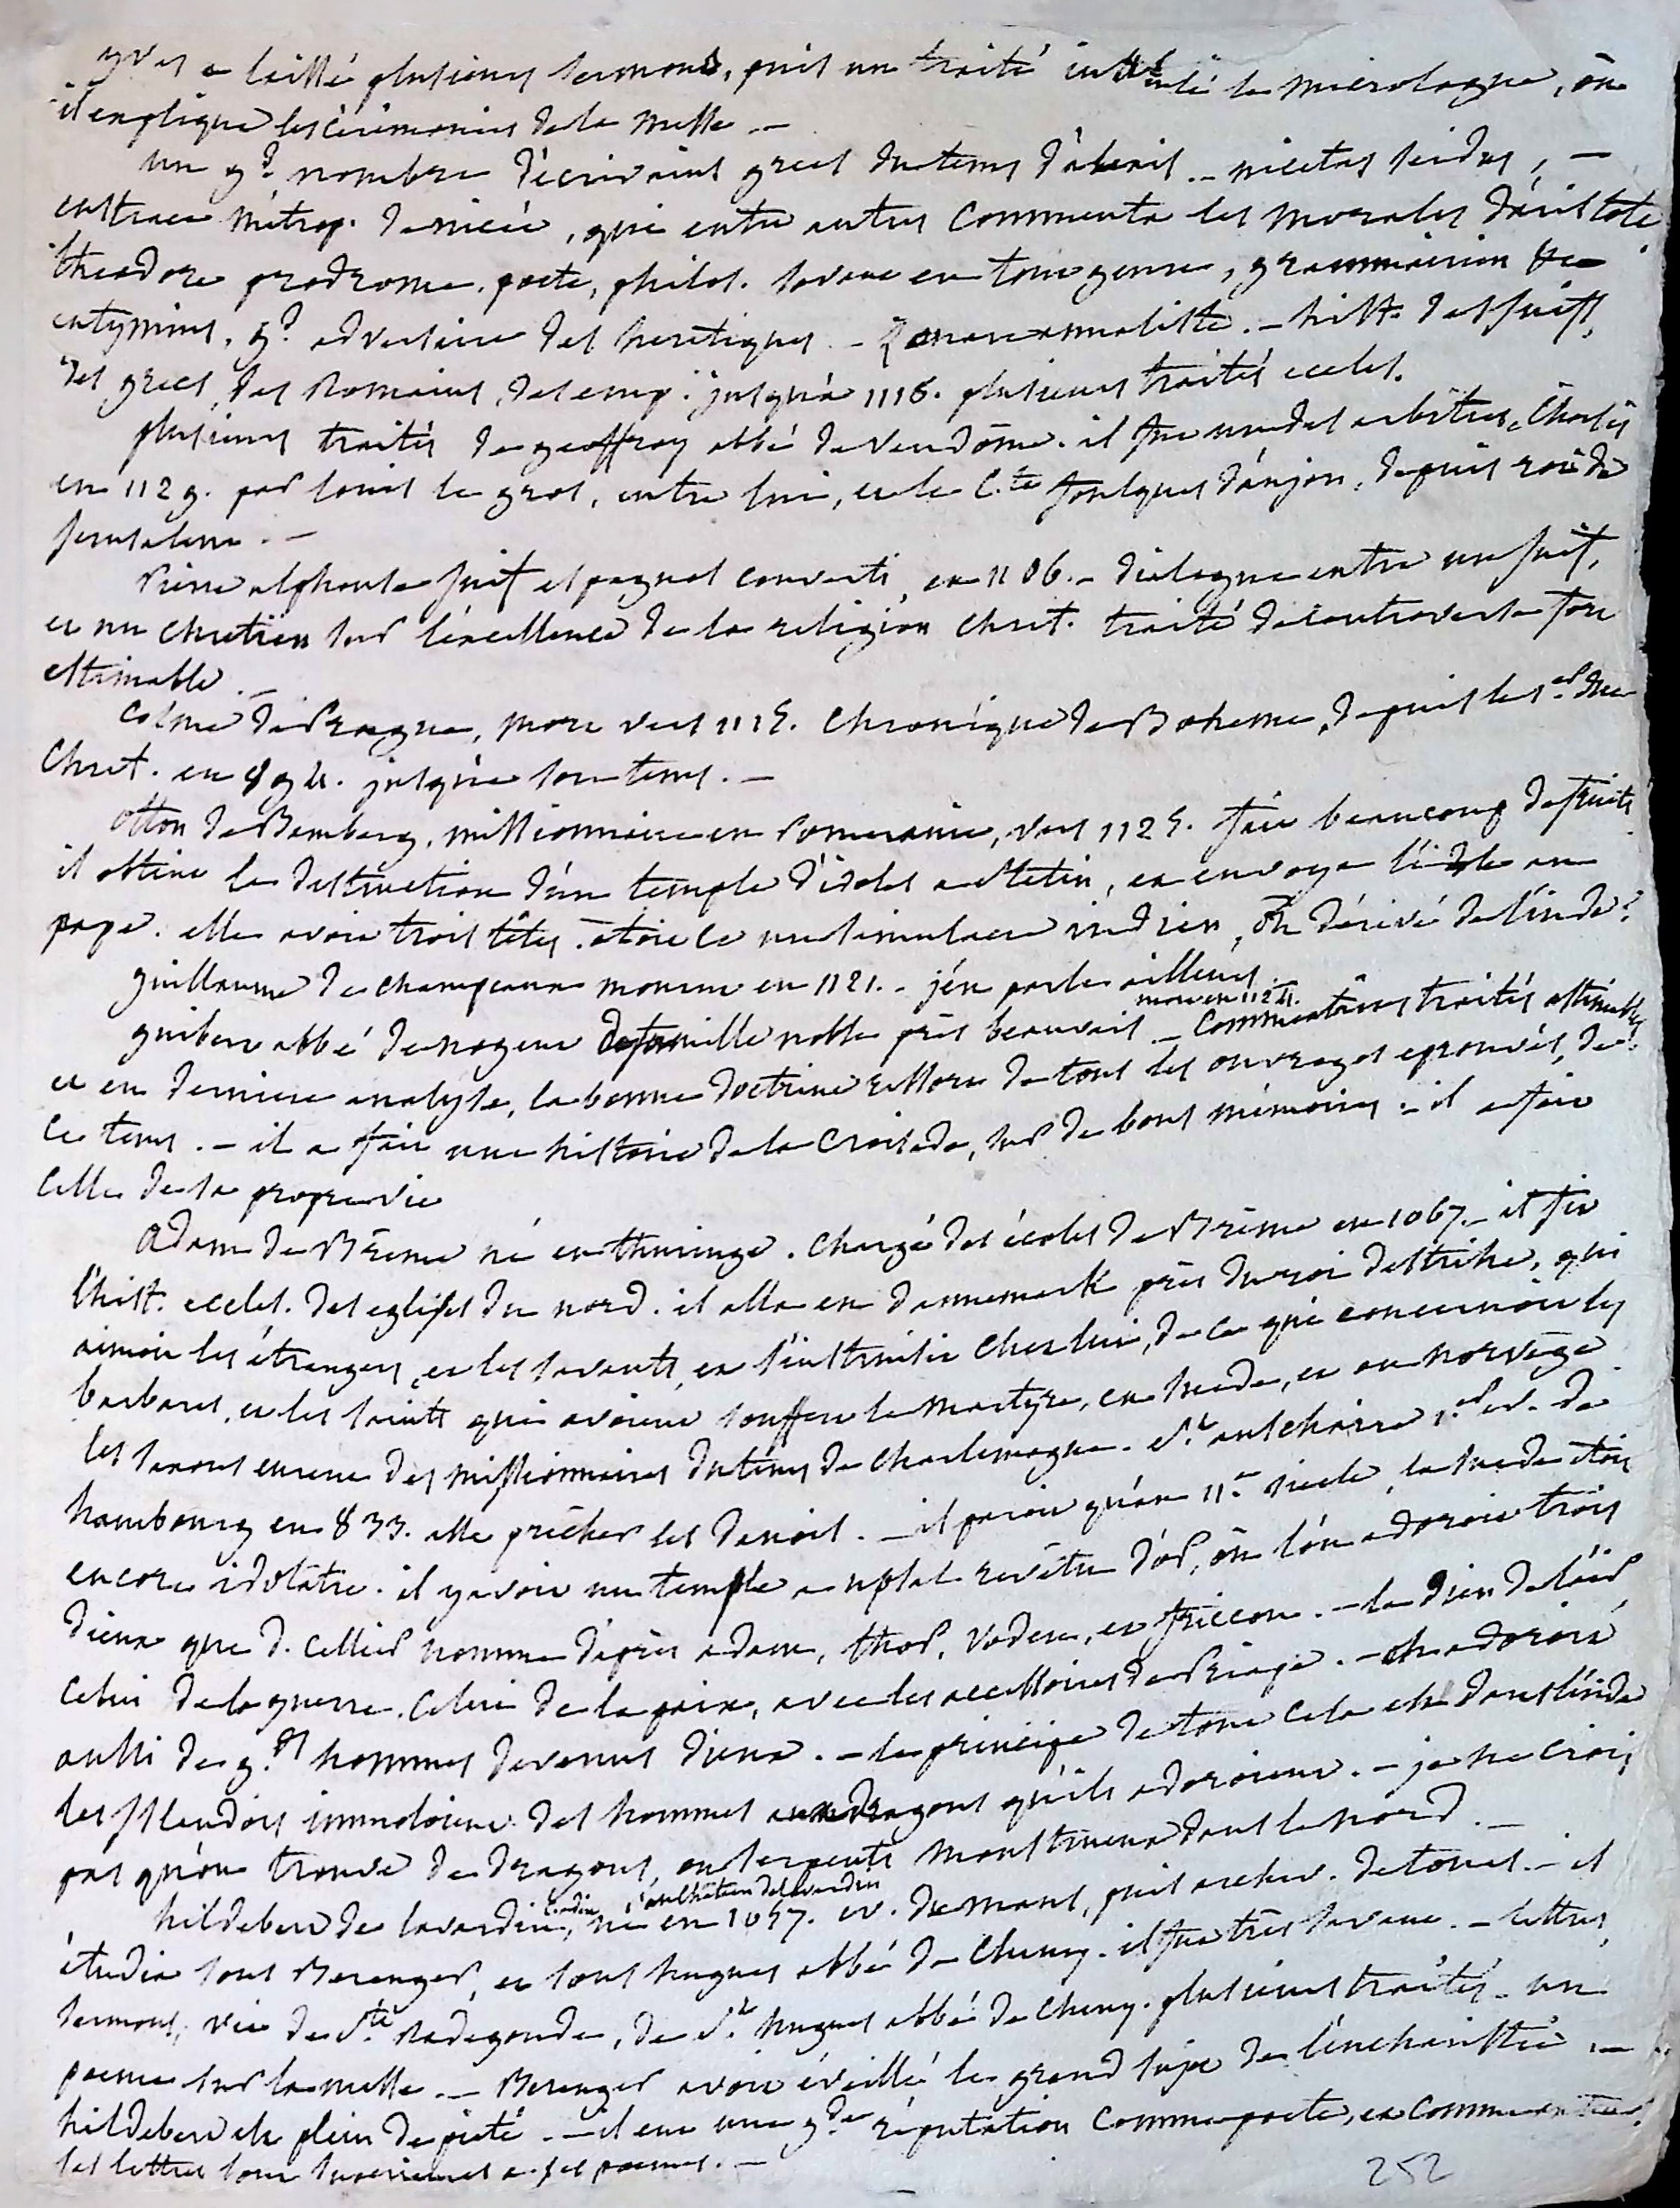 yves a laissé plusieurs sermons, puis un traité intitulé le micrologue, où
il explique les cérémonies de la messe. —
un gd. nombre d'écrivains grecs du tems d'alexis. — nicetas seidus, —
eustrace métrop. de nicée, qui entre autres commenta les morales d'aristote
theodore prodrome. poete, philos. savant en tout genre, grammairien &c
eutymius, gd. adversaire des heretiques. — Zonare annaliste. — hist. des juifs,
des grecs, des Romains, des emp. jusqu'à 1118. plusieurs traités eccles.
plusieurs traités de geoffroy abbé de Vendôme. il fut un des arbitres, choisis
en 1129. par louis le gros, entre lui, et le C.te foulques d'anjou, depuis roi de
Jerusalem. —
Pierre alphonse juif espagnol converti, en 1106. — dialogue entre un juif,
et un chretien sur l'excellence de la religion chret. traité de controverse fort
estimable. —
Cosme de Prague, mort vers 1125. chronique de Boheme, depuis le 1.er duc
Chret. en 894. jusqu'à son tems. —
otton de Bamberg, missionnaire en Pomeranie, vers 1125. fait beaucoup de fruits
il obtint la destruction d'un temple d'idoles a Stetin, et envoya l'idole au
pape. elle avoit trois têtes. étoit ce un simulacre indien, ou dérivé de l'inde?
guillaume de champeaux mourut en 1121. — j'en parle ailleurs. —
mort en 1124.
guibert abbé de nogent de famille noble près beauvais — Commentaires traités estimables
et en derniere analyse, la bonne doctrine ressort de tous les ouvrages eprouvés, de
ce tems. — il a fait une histoire de la Croisade, sur de bons mémoires. — il a fait
celle de sa propre vie
Adam de Brême né en thuringe. chargé des écoles de Brême en 1067. — il fit
l'hist. eccles. des eglises du nord. il alla en dannemark près du roi destrihe, qui
aimoit les étrangers, et les savants, et s'instruisit chez lui, de ce qui concernoit les
barbares, et les saints qui avoient souffert le martyre, en suede, et en norvège
les saxons eurent des missionnaires du tems de charlemagne. St. anschaire 1.er ev. de
hambourg en 833. alla prêcher les danois. — il paroit qu'au 11.e siecle, la suede étoit
encore idolatre. il y avoit un temple a upsal revêtu d'or, où l'on adoroit trois
dieux que d. cellier nomme d'après adam, thor, voden, et friccon. — le dieu de l'air
celui de la guerre. celui de la paix, avec les accessoires de Priape. — on adoroit
aussi de gds. hommes devenus dieux. — le principe de tout cela est dans l'inde
les Islandois immoloient des hommes aux dragons qu'ils adoroient. — je ne crois
pas qu'on trouve de dragons, ou serpents monstrueux dans le nord. —
au château de lavardin
hildebert de lavardin, né en 1057. ev. du mans, puis archev. de tours. — il
étudia sous Berenger, et sous hugues abbé de Cluny. il fut très savant. — lettres,
sermons, vie de Ste. Radegonde, de St. hugues abbé de cluny. plusieurs traités — un
poeme sur la messe. — Berenger avoit éveillé le grand sujet de l'eucharistie. —
hildebert est plein de pieté. — il eut une gde. réputation comme poete, et comme
ses lettres sont superieures a ses poemes. —
252